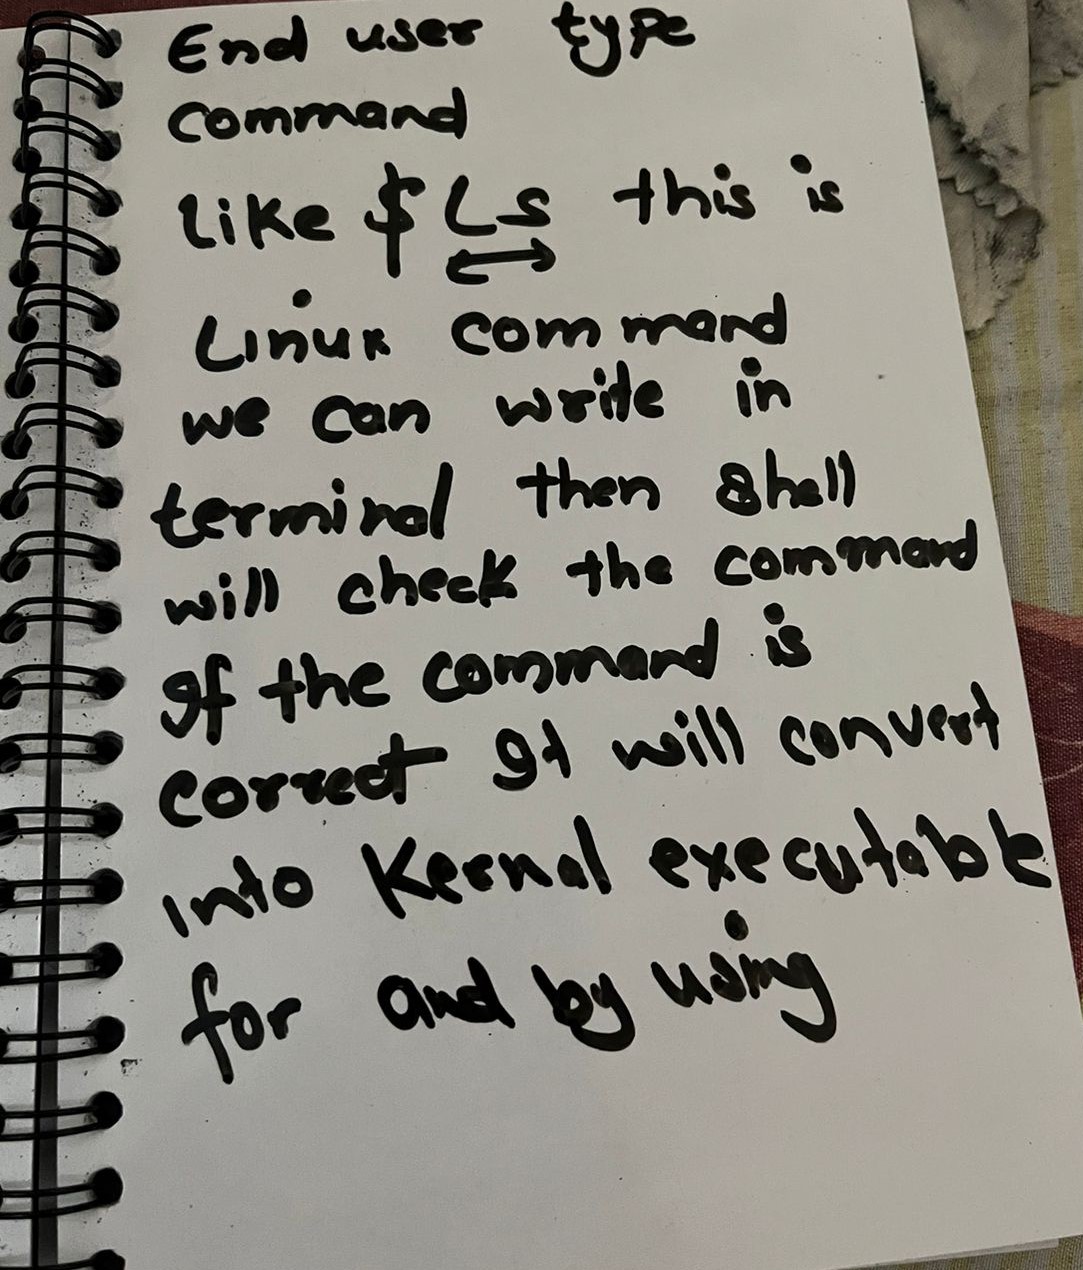 End user type
command
like $ Ls this is
Linux command
we can write in
terminal then shell
will check the command
If the command is
correct It will convert
into Kernal executable
for and by using